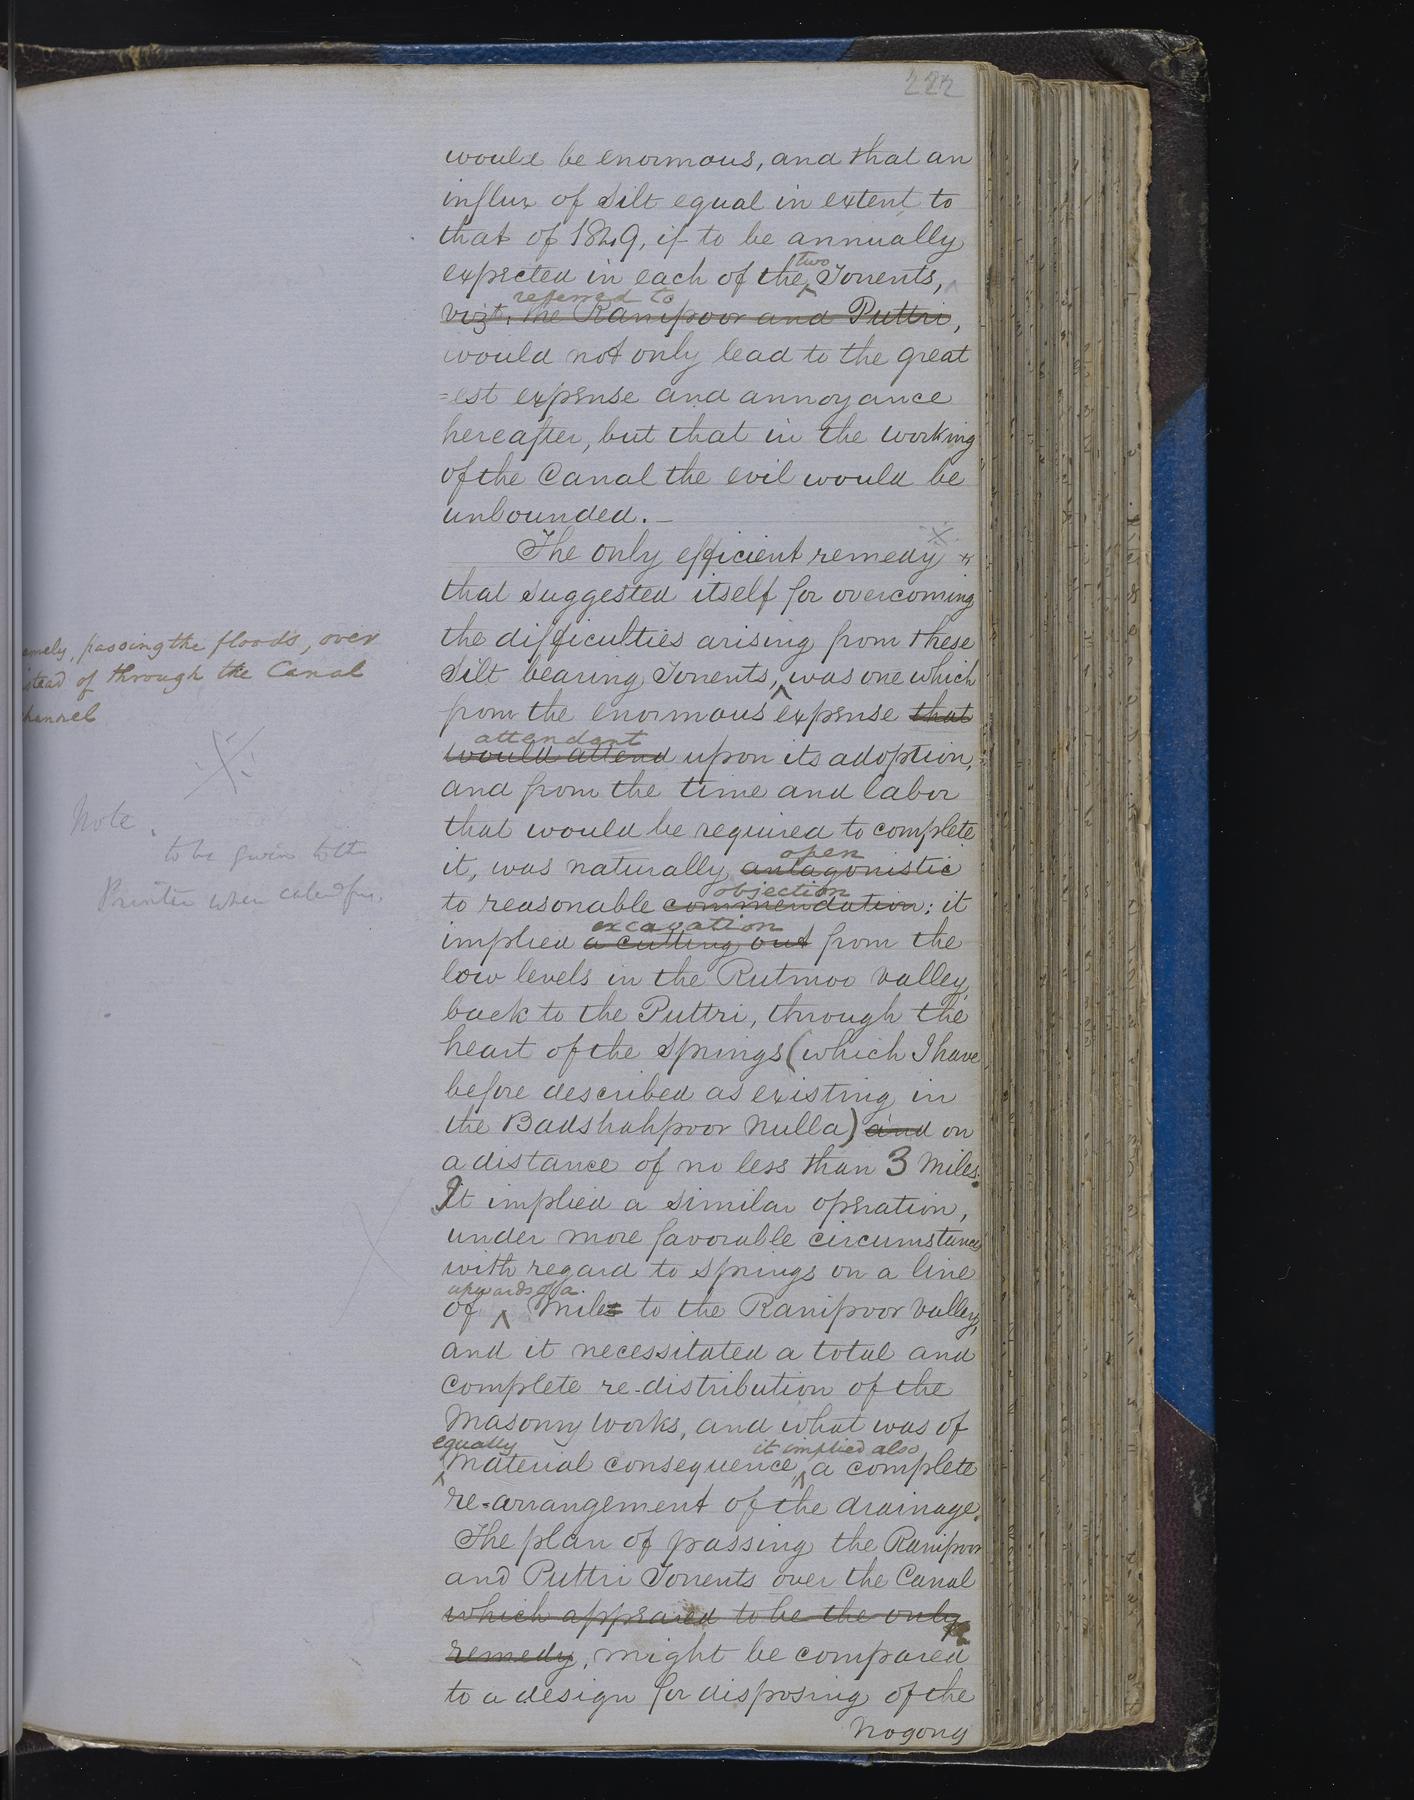 222
would be enormous, and that an
influx of Silt equal in extent to
that of 1849, if to be annually
two
expected in each of the Torrents,
referred to
vizt. the Ranipoor and Puttri,
would not only lead to the great
=est expense and annoyance
hereafter, but that in the working
of the Canal the evil would be
unbounded._
The only efficient remedy
that suggested itself for overcoming
the difficulties arising from these
Silt bearing Torrents, was one which
from the enormous expense that
attendant
would attend upon its adoption,
and from the time and labor
that would be required to complete
open
it, was naturally antagonistic
objection
to reasonable commendation: it
excavation
implied a cutting out from the
low levels in the Rutmoo valley
back to the Puttri, through the
heart of the Springs (which I have
before described as existing in
the Badshahpoor Nulla) and on
a distance of no less than 3 Miles.
It implied a similar operation,
under more favorable circumstances
with regard to springs on a line
upwards of a
of miles to the Ranipoor valley,
and it necessitated a total and
complete re-distribution of the
Masonry works, and what was of
equally it implied also
material consequence, a complete
re=arrangement of the drainage.
The plan of passing the Ranipoor
and Puttri Torrents over the Canal
which appeared to be the only
remedy, might be compared
to a design for disposing of the
Nogong
amely, passing the floods, over
stead of through the Canal
hannel
Note
to be given to the
Printer when